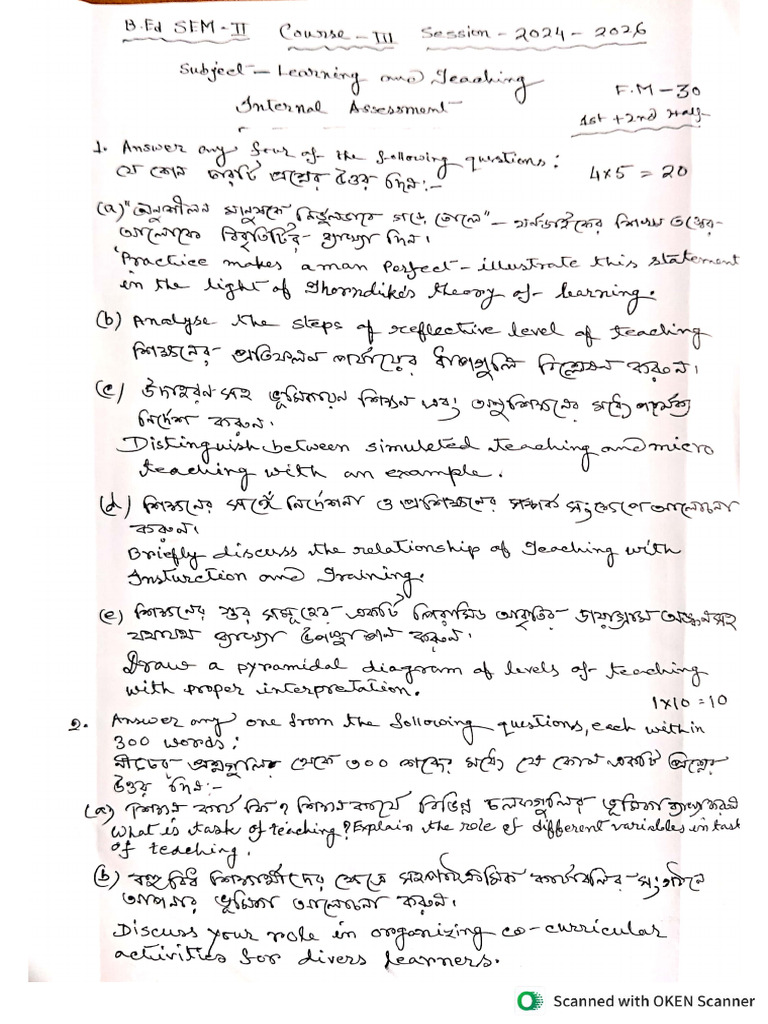 B.Ed SEM-II Course-III Session-2024-2026
Subject- Learning and Teaching
Internal Assessment
F.M-30
1st+2nd Half
1. Answer any four of the following questions:
যে কোন চারটি প্রশ্নের উত্তর দিন:-
4x5=20
(a) "অনুশীলন মানুষকে নির্ভুলভাবে গড়ে তোলে" - থর্নডাইকের শিখন তত্ত্বের-
আলোকে বিবৃতিটির- ব্যাখ্যা দিন।
'Practice makes a man Perfect - illustrate this statement
in the light of Thorndike's theory of learning.
(b) Analyse the steps of reflective level of teaching
শিক্ষনের- প্রতিফলন পর্যায়ের ধাপগুলি বিশ্লেষন করুন।
(c) উদাহরন সহ ভূমিকায়ন শিক্ষন এবং অনুশিক্ষনের মধ্যে পার্থক্য
নির্দেশ করুন।
Distinguish between simuleted teaching and micro
teaching with an example.
(d) শিক্ষনের সঙ্গে নির্দেশনা ও প্রশিক্ষনের সম্পর্ক সংক্ষেপে আলোচনা
করুন।
Briefly discuss the relationship of Teaching with
Insturction and Training.
(e) শিক্ষনের স্তর সমূহের একটি পিরামিড আকৃতির- ডায়াগ্রাম অঙ্কনসহ
যথাযথ ব্যাখ্যা উপস্থাপন করুন।
Draw a pyramidal diagram of levels of teaching
with proper interpretation.
1x10=10
2. Answer any one from the following questions, each within
300 words:
নীচের প্রশ্নগুলির থেকে ৩০০ শব্দের মধ্যে যে কোন একটি প্রশ্নের
উত্তর দিন:-
(a) শিক্ষন কার্য কি? শিক্ষন কার্যে বিভিন্ন চলকগুলির ভূমিকা ব্যাখ্যা করুন
What is task of teaching? Explain the role of different variables in task
of teaching.
(b) বহুবিধ শিক্ষার্থীদের ক্ষেত্রে সহপাঠক্রমিক কার্যাবলির- সংগঠনে
আপনার ভূমিকা আলোচনা করুন।
Discuss your role in organizing co-curricular
activities for divers learners.
Scanned with OKEN Scanner